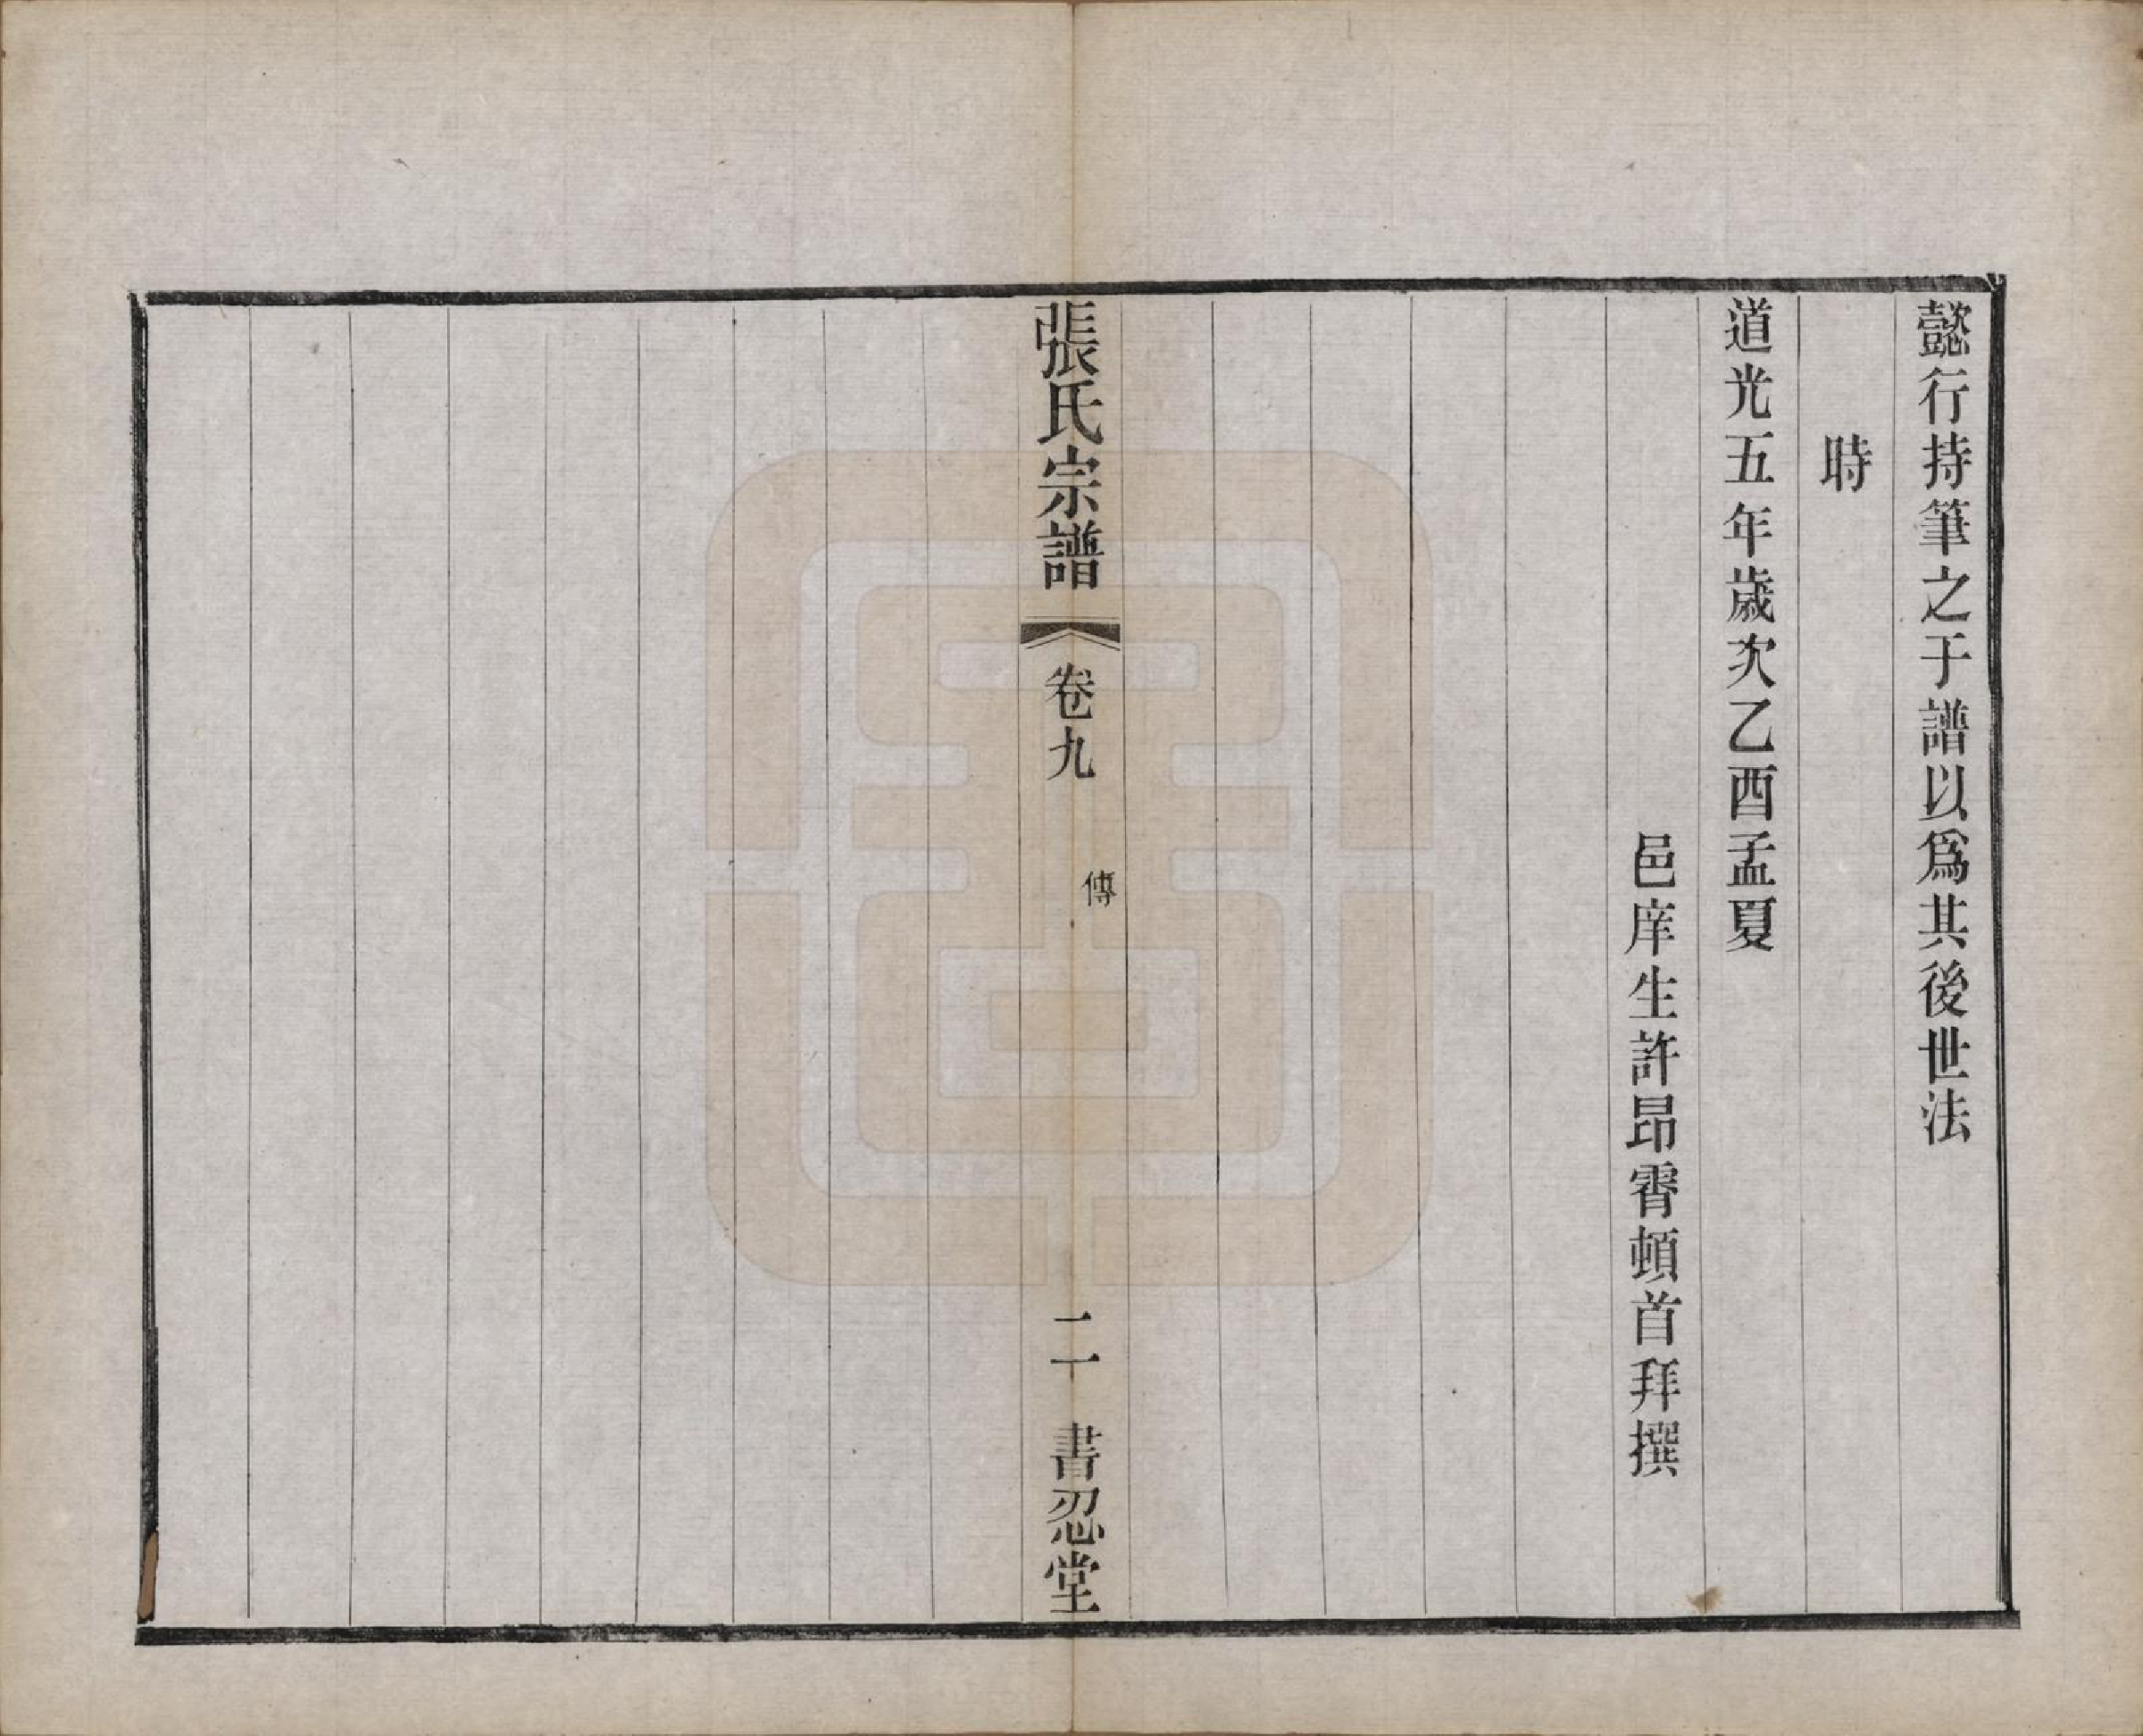 懿行持筆之于譜以爲其後世法
時
道光五年歲次乙酉孟夏
邑庠生許昂霄頓首拜撰
張氏宗譜
卷九
傳
二
書忍堂